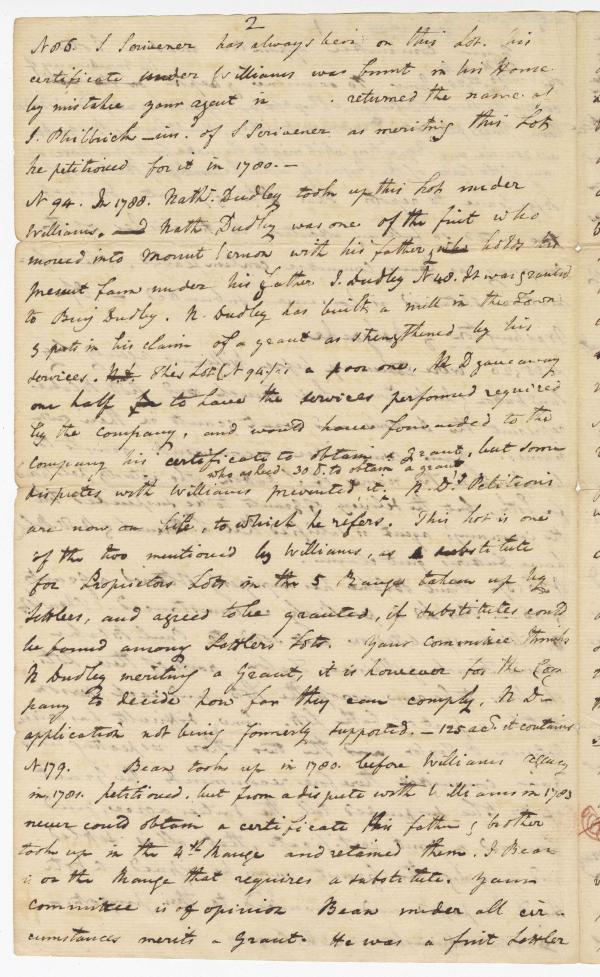 2
N 86. I Scrivener has always been on this Lot. his
certificate under Williams was burnt in his House
by mistake your agent in returned the name of
J. Philbrick — ins. of I Scrivener as meriting this Lot
he petitioned for it in 1780. —
N 94. In 1788. Nath. Dudley took up this Lot under
Williams. Nath Dudley was one of the first who
moved into Mount Vernon with his father & holds his
present farm under his father J. Dudley N 48. It was granted
to Benj Dudley. N. Dudley has built a mill in the Town
& puts in his claim of a grant as strengthened by his
services. This Lot (N 94) is a poor one. N D gave away
one half to have the services performed required
by the company, and would have forwarded to the
company his certificate to obtain a grant, but some
who asked 30 D. to obtain a grant
disputes with Williams prevented it. N. D.s Petitions
are now on file, to which he refers. This Lot is one
of the two mentioned by Williams, as a substitute
for Proprietors Lots in the 5 Range taken up by
Settlers, and agreed to be granted, if substitutes could
be found among Settlers Lots. Your committee thinks
N Dudley meriting a Grant, it is however for the Com
pany to decide how far they can comply, N D—
application not being formerly supported. — 125 acs. it contains
N 179. Bean took up in 1780. before Williams agency
in 1781. petitioned. but from a dispute with Williams in 1783
never could obtain a certificate his father & brother
took up in the 4th Range and retained them. J Bean
is on the Range that requires a substitute. Your
committee is of opinion Bean under all cir-
cumstances merits a Grant. He was a first Settler